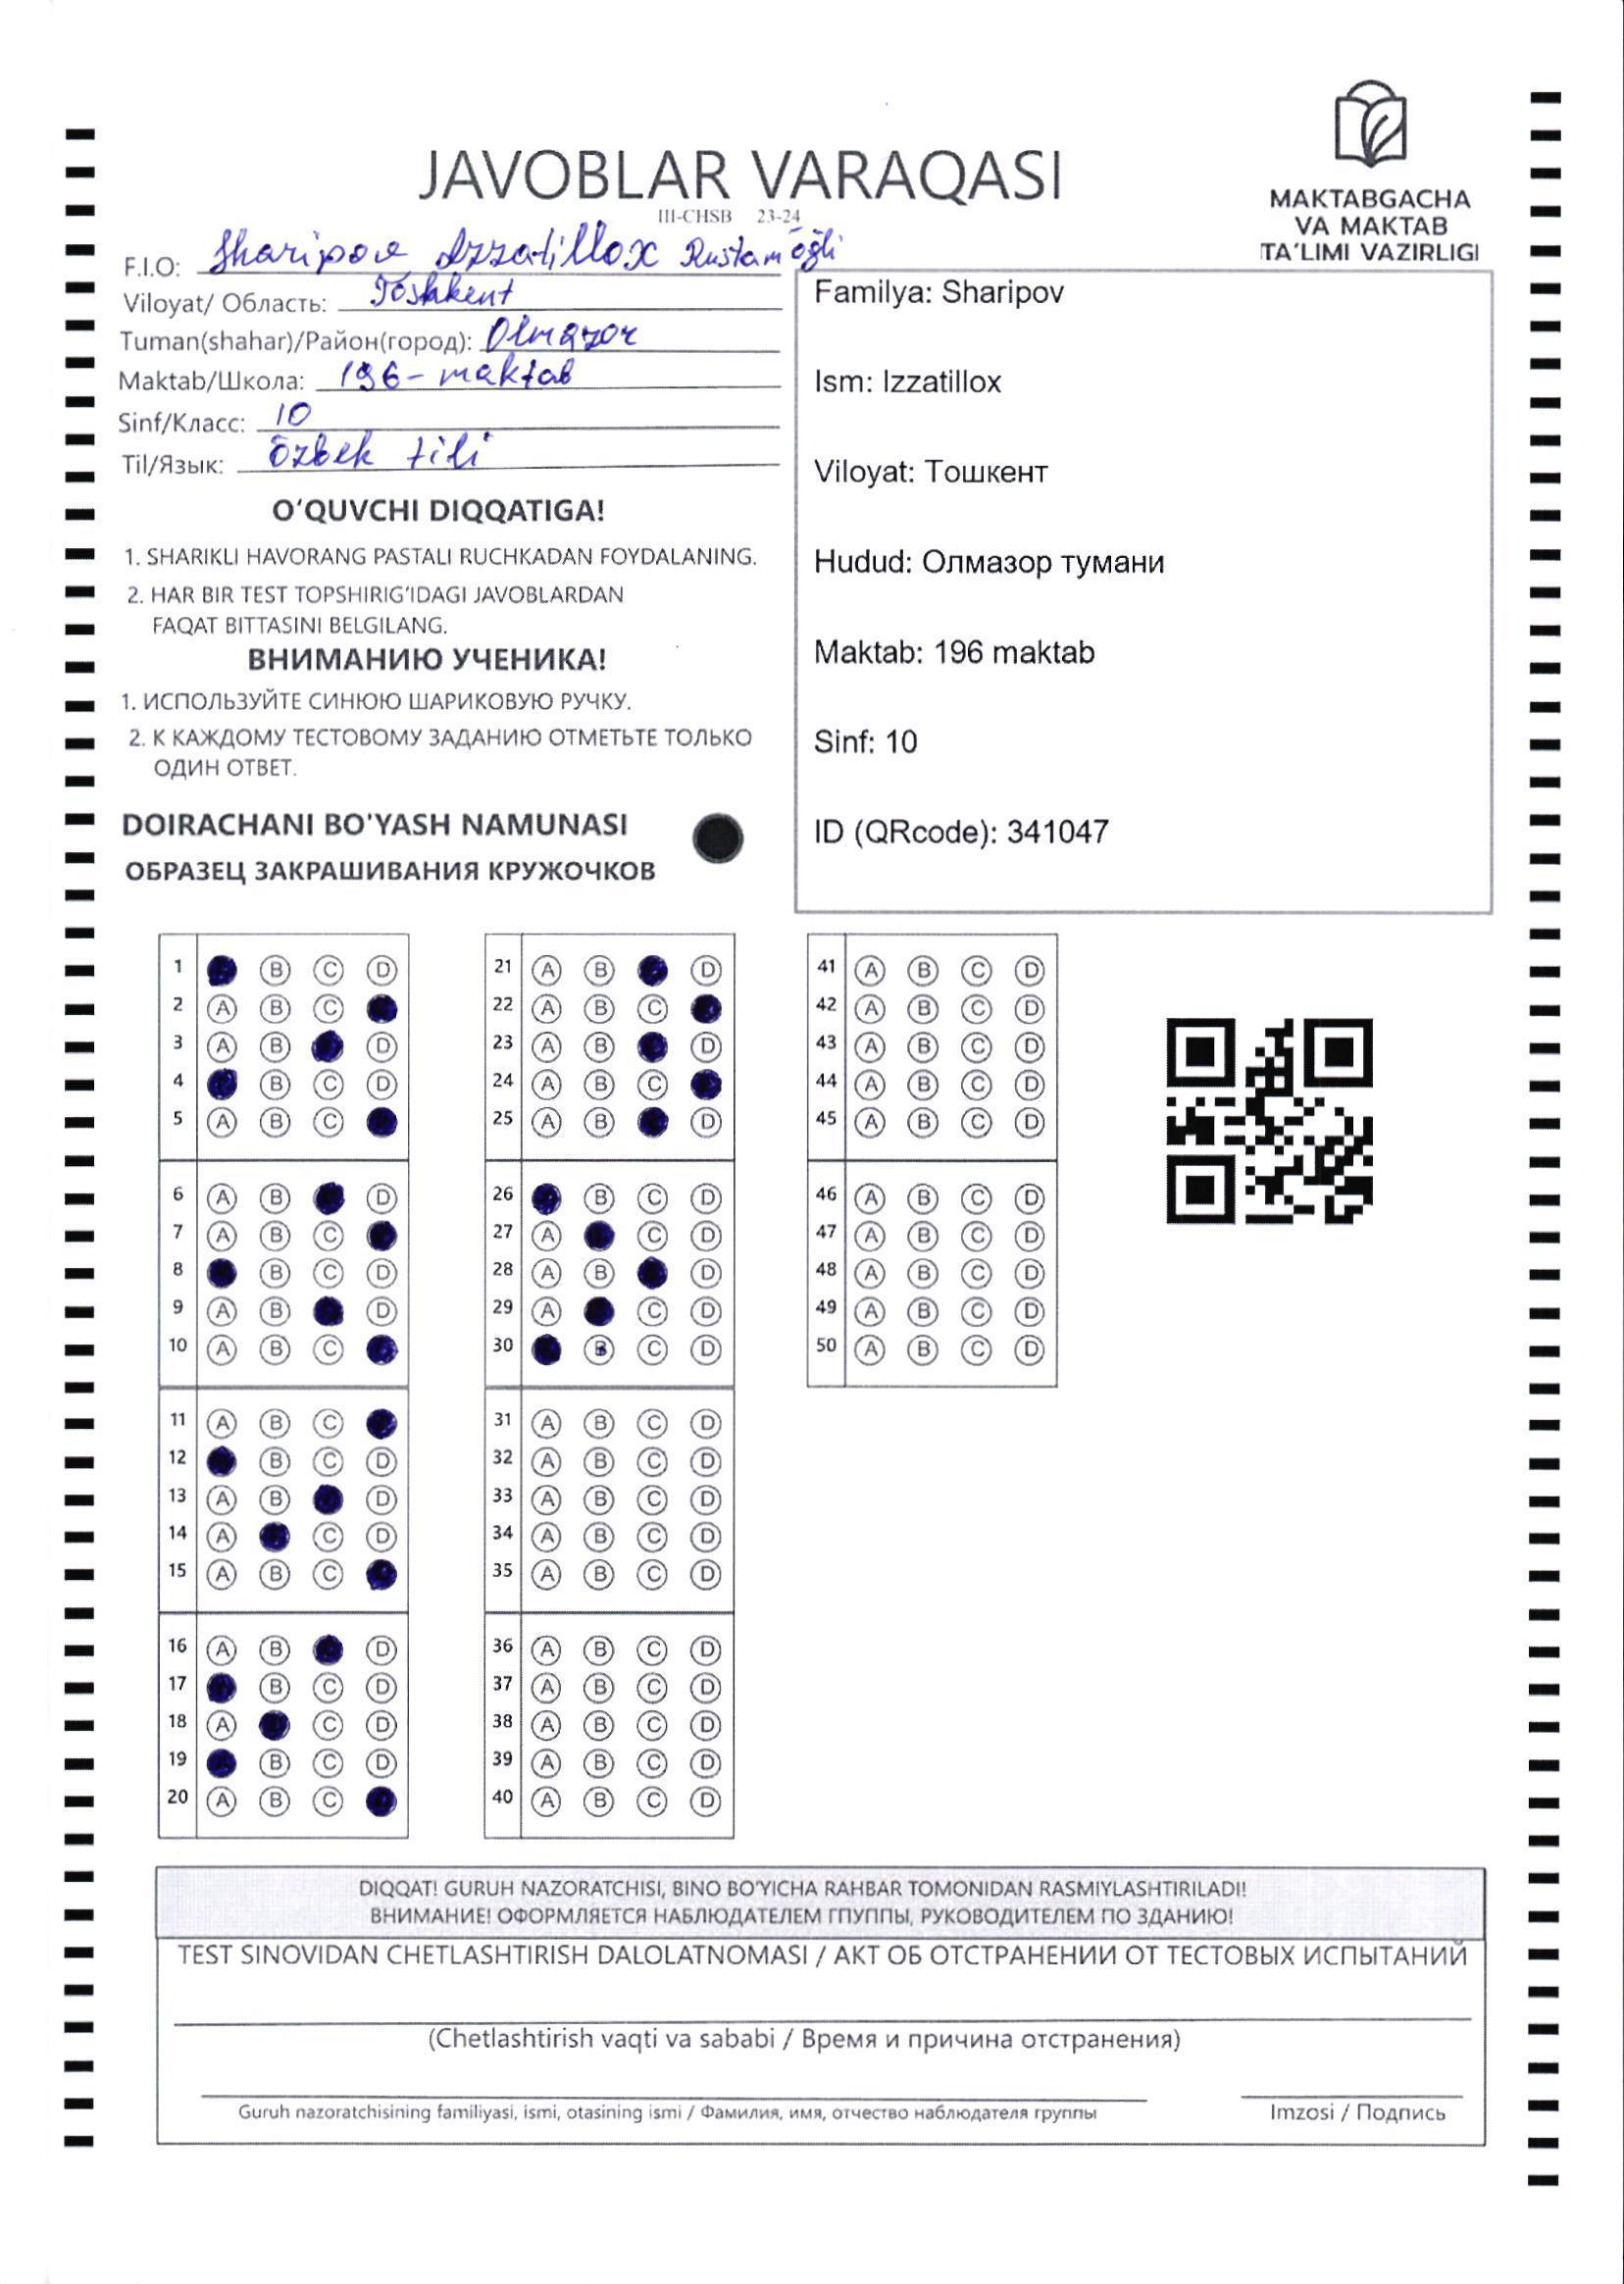 JAVOBLAR VARAQASI
III-CHSB 23-24
MAKTABGACHA
VA MAKTAB
TA'LIMI VAZIRLIGI
F.I.O: Sharipov Izzatillox Rustam o'g'li
Viloyat/ Область: Toshkent
Tuman(shahar)/Район(город): Olmazor
Maktab/Школа: 196-maktab
Sinf/Класс: 10
Til/Язык: Õzbek tili
O'QUVCHI DIQQATIGA!
1. SHARIKLI HAVORANG PASTALI RUCHKADAN FOYDALANING.
2. HAR BIR TEST TOPSHIRIG'IDAGI JAVOBLARDAN
FAQAT BITTASINI BELGILANG.
ВНИМАНИЮ УЧЕНИКА!
1. ИСПОЛЬЗУЙТЕ СИНЮЮ ШАРИКОВУЮ РУЧКУ.
2. К КАЖДОМУ ТЕСТОВОМУ ЗАДАНИЮ ОТМЕТЬТЕ ТОЛЬКО
ОДИН ОТВЕТ.
DOIRACHANI BO'YASH NAMUNASI
ОБРАЗЕЦ ЗАКРАШИВАНИЯ КРУЖОЧКОВ
Familya: Sharipov
Ism: Izzatillox
Viloyat: Тошкент
Hudud: Олмазор тумани
Maktab: 196 maktab
Sinf: 10
ID (QRcode): 341047
1 B C D
2 A B C
3 A B D
4 B C D
5 A B C
6 A B D
7 A B C
8 B C D
9 A B D
10 A B C
11 A B C
12 B C D
13 A B D
14 A C D
15 A B C
16 A B D
17 B C D
18 A C D
19 B C D
20 A B C
21 A B D
22 A B C
23 A B D
24 A B C
25 A B D
26 B C D
27 A C D
28 A B D
29 A C D
30 B C D
31 A B C D
32 A B C D
33 A B C D
34 A B C D
35 A B C D
36 A B C D
37 A B C D
38 A B C D
39 A B C D
40 A B C D
41 A B C D
42 A B C D
43 A B C D
44 A B C D
45 A B C D
46 A B C D
47 A B C D
48 A B C D
49 A B C D
50 A B C D
DIQQAT! GURUH NAZORATCHISI, BINO BO'YICHA RAHBAR TOMONIDAN RASMIYLASHTIRILADI!
ВНИМАНИЕ! ОФОРМЛЯЕТСЯ НАБЛЮДАТЕЛЕМ ГПУППЫ, РУКОВОДИТЕЛЕМ ПО ЗДАНИЮ!
TEST SINOVIDAN CHETLASHTIRISH DALOLATNOMASI / АКТ ОБ ОТСТРАНЕНИИ ОТ ТЕСТОВЫХ ИСПЫТАНИЙ
(Chetlashtirish vaqti va sababi / Время и причина отстранения)
Guruh nazoratchisining familiyasi, ismi, otasining ismi / Фамилия, имя, отчество наблюдателя группы
Imzosi / Подпись